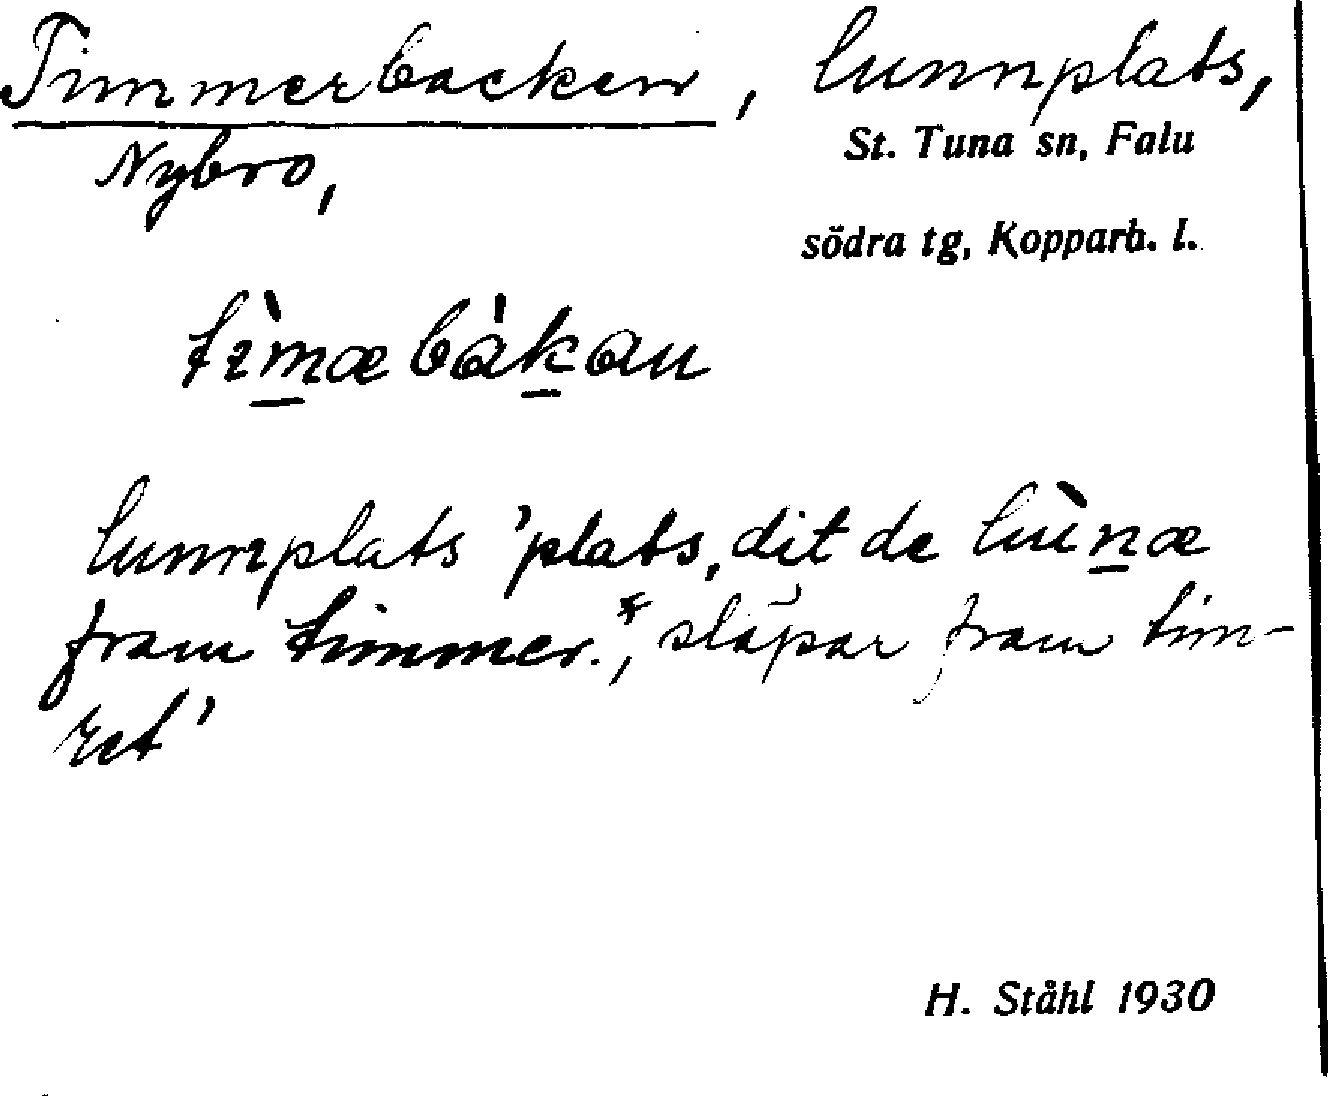 Timmerbacken, lunnplats,
St. Tuna sn, Falu
Nybro,
södra tg, Kopparb. l.
tìm̲æbàk̲an
lunnplats 'plats, dit de lùn̲æ
fram timmer.*, släpar fram tim-
ret'
H. Ståhl 1930